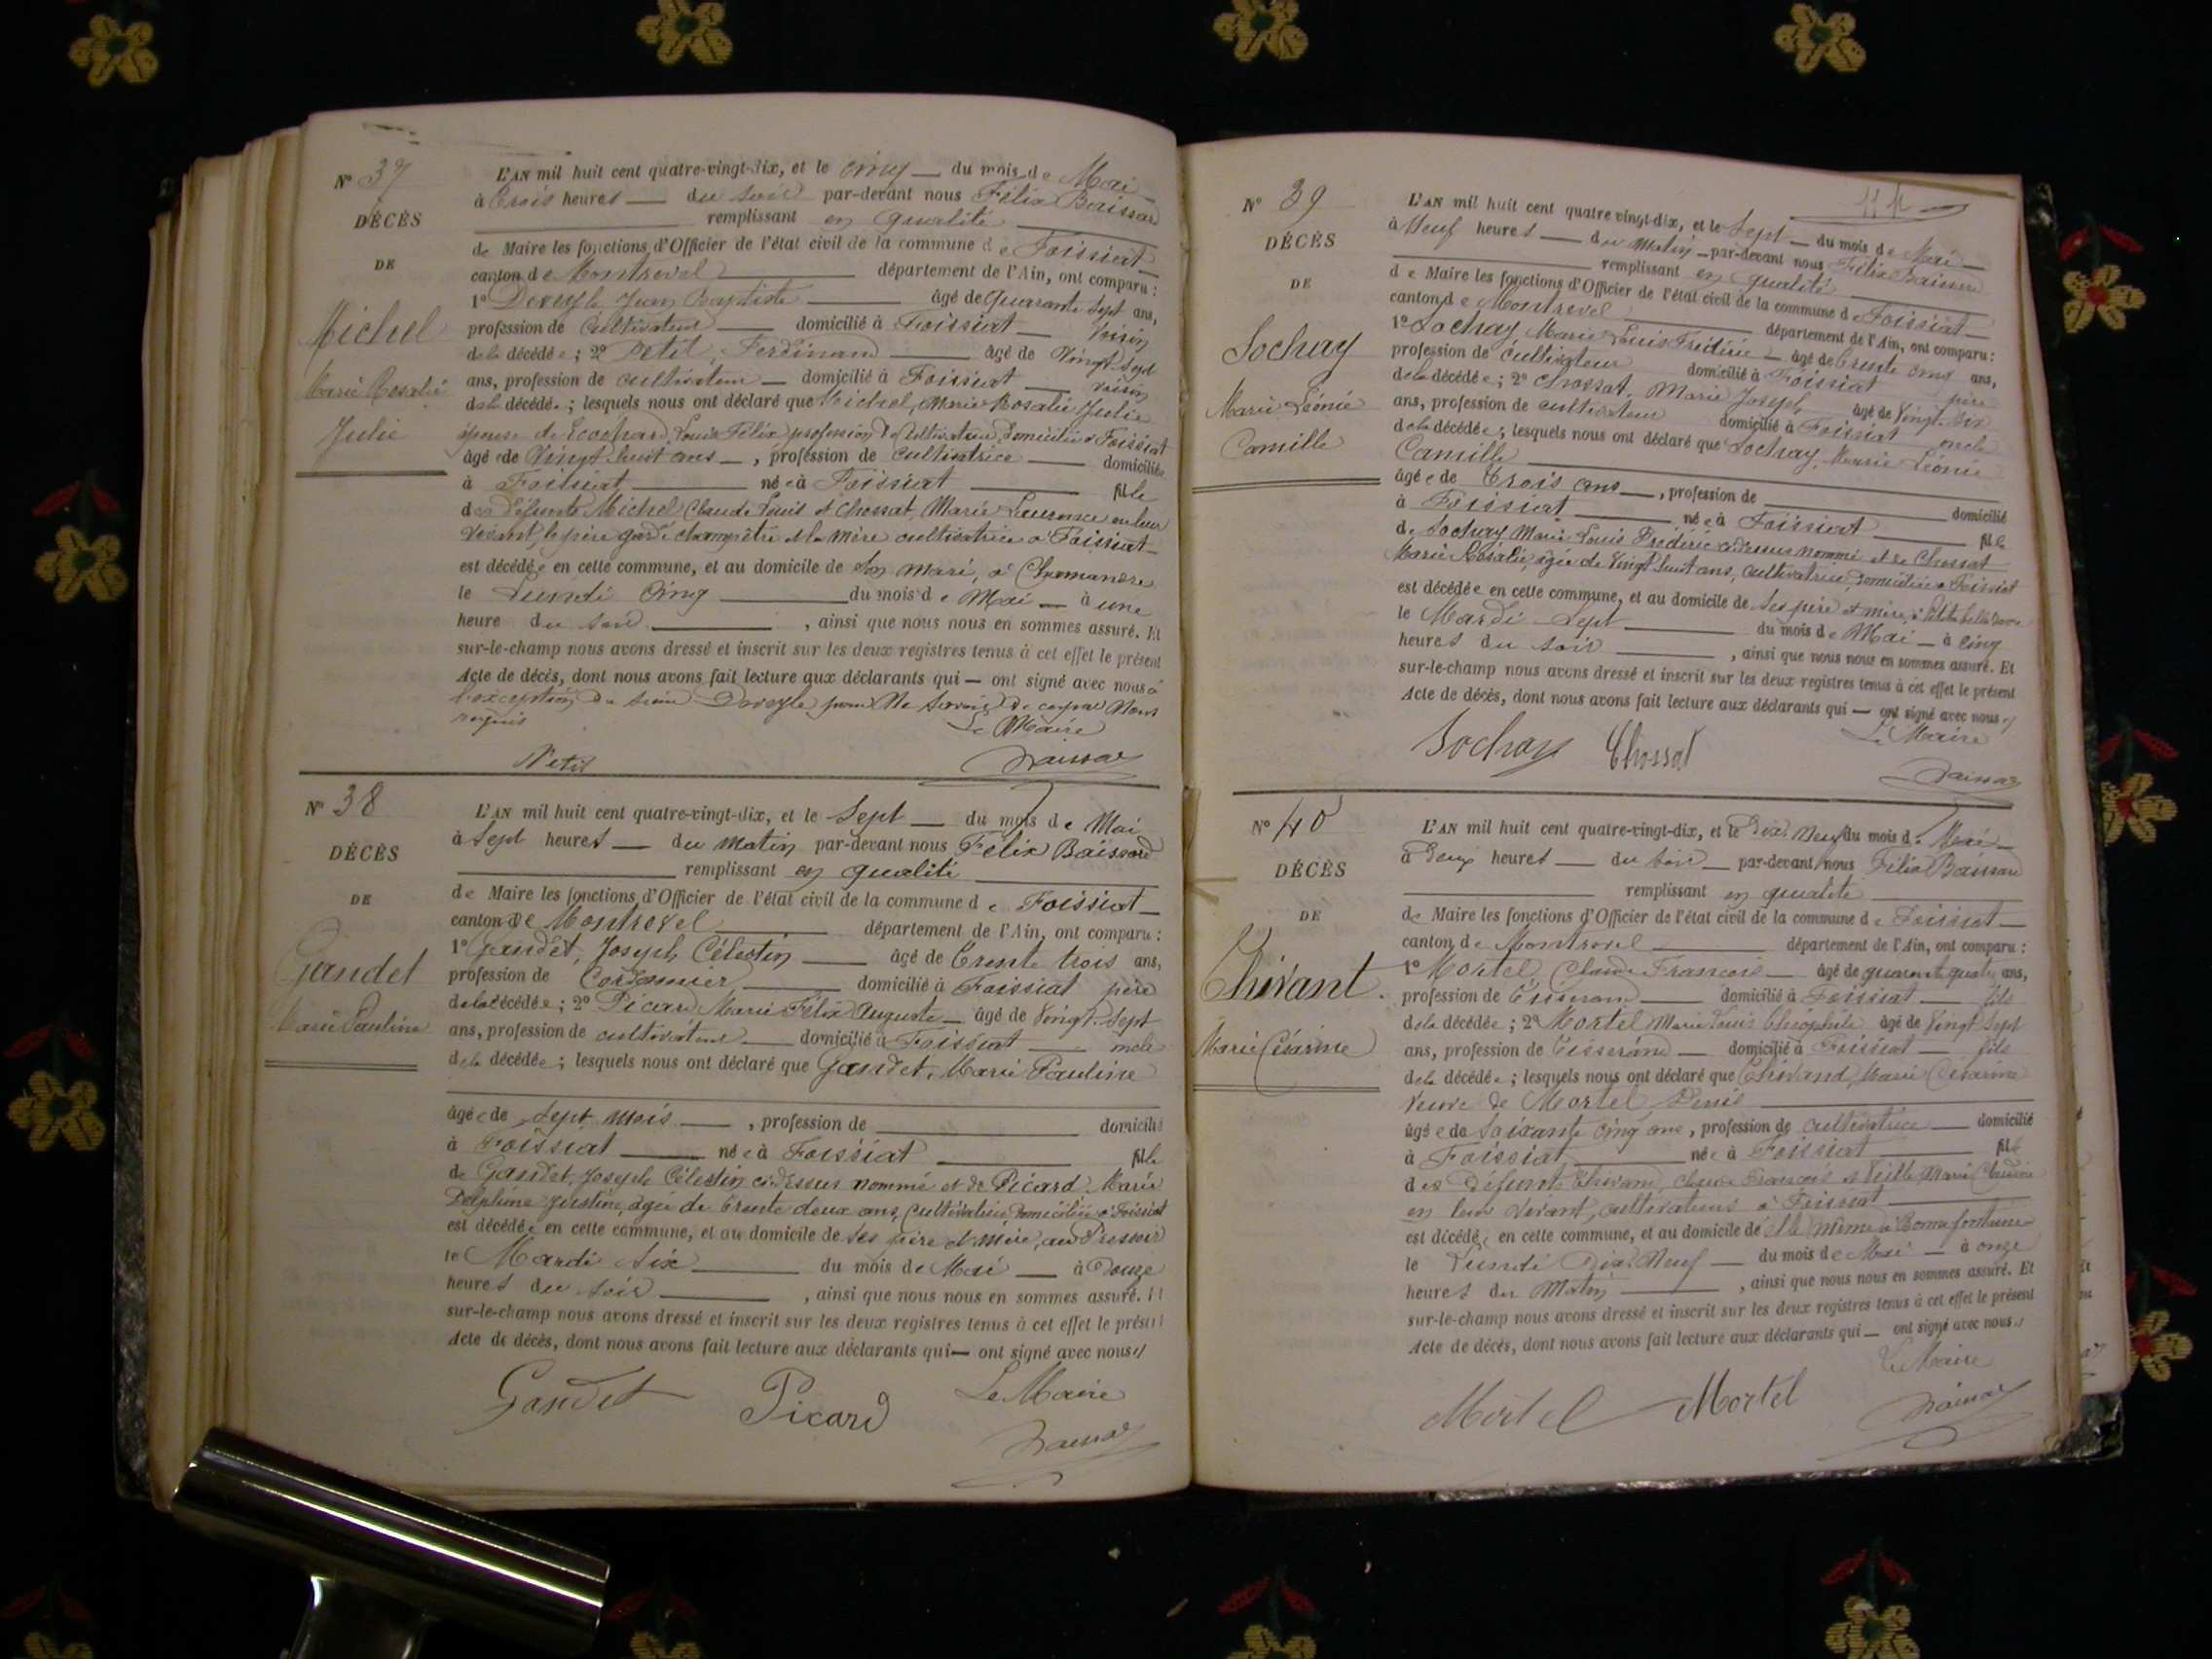 N° 37
DÉCÈS
DE
Michel
Marie Rosalie
Julie
L'AN mil huit cent quatre-vingt-dix, et le cinq du mois de Mai
à trois heures du soir par-devant nous Félix Baissard
remplissant en qualité
de Maire les fonctions d'Officier de l'état civil de la commune de Foissiat
canton de Montrevel département de l'Ain, ont comparu :
1° Dereyle Jean Baptiste âgé de quarante sept ans,
profession de cultivateur domicilié à Foissiat voisin
de la décédée ; 2° Petit, Ferdinand âgé de vingt sept
ans, profession de cultivateur domicilié à Foissiat voisin
de la décédée ; lesquels nous ont déclaré que Michel, Marie Rosalie Julie
épouse de Ecochard, Louis Félix profession de cultivateur, domicilié à Foissiat
âgée de vingt huit ans, profession de cultivatrice domiciliée
à Foissiat née à Foissiat fille
des défunts Michel Claude Louis et Chossat, Marie Laurence en leur
vivant, le père garde champêtre et la mère cultivatrice à Foissiat
est décédée en cette commune, et au domicile de son mari, à
le Lundi cinq du mois de Mai à une
heure du soir, ainsi que nous nous en sommes assuré. Et
sur-le-champ nous avons dressé et inscrit sur les deux registres tenus à cet effet le présent
Acte de décès, dont nous avons fait lecture aux déclarants qui ont signé avec nous à
l'exception du sieur Dereyle pour ne savoir de ce par nous
requis
Le Maire
Petit Baissard
N° 38
DÉCÈS
DE
Gandet
Marie Pauline
L'AN mil huit cent quatre-vingt-dix, et le sept du mois de Mai
à sept heures du matin par-devant nous Félix Baissard
remplissant en qualité
de Maire les fonctions d'Officier de l'état civil de la commune de Foissiat
canton de Montrevel département de l'Ain, ont comparu :
1° Gandet, Joseph Célestin âgé de trente trois ans,
profession de Cordonnier domicilié à Foissiat père
de la décédée ; 2° Picard Marie Félix Auguste âgé de vingt sept
ans, profession de cultivateur domicilié à Foissiat oncle
de la décédée ; lesquels nous ont déclaré que Gandet, Marie Pauline
âgée de sept mois, profession de domicilié
à Foissiat née à Foissiat fille
de Gandet, Joseph Célestin ci-dessus nommé et de Picard Marie
Delphine Justine, âgée de trente deux ans, cultivatrice domiciliée à Foissiat
est décédée en cette commune, et au domicile de ses père et mère, au Pressoir
le Mardi six du mois de Mai à douze
heures du soir, ainsi que nous nous en sommes assuré. Et
sur-le-champ nous avons dressé et inscrit sur les deux registres tenus à cet effet le présent
Acte de décès, dont nous avons fait lecture aux déclarants qui ont signé avec nous
Gandet Picard Le Maire
Baissard
N° 39
DÉCÈS
DE
Sochay
Marie Léonie
Camille
L'AN mil huit cent quatre-vingt-dix, et le sept du mois de Mai
à neuf heures du matin par-devant nous Félix Baissard
remplissant en qualité
de Maire les fonctions d'Officier de l'état civil de la commune de Foissiat
canton de Montrevel département de l'Ain, ont comparu :
1° Sochay Marie Louis Frédéric âgé de trente cinq ans,
profession de cultivateur domicilié à Foissiat père
de la décédée ; 2° Chossat, Marie Joseph âgé de vingt six
ans, profession de cultivateur domicilié à Foissiat oncle
de la décédée ; lesquels nous ont déclaré que Sochay, Marie Léonie
Camille
âgée de trois ans, profession de domicilié
à Foissiat née à Foissiat fille
de Sochay Marie Louis Frédéric ci-dessus nommé et de Chossat
Marie Rosalie, âgée de vingt huit ans, cultivatrice domiciliée à Foissiat
est décédée en cette commune, et au domicile de ses père et mère, à
le Mardi sept du mois de Mai à cinq
heures du soir, ainsi que nous nous en sommes assuré. Et
sur-le-champ nous avons dressé et inscrit sur les deux registres tenus à cet effet le présent
Acte de décès, dont nous avons fait lecture aux déclarants qui ont signé avec nous
Le Maire
Sochay Chossat
Baissard
N° 40
DÉCÈS
DE
Chivant
Marie Césarine
L'AN mil huit cent quatre-vingt-dix, et le dix neuf du mois de Mai
à deux heures du soir par-devant nous Félix Baissard
remplissant en qualité
de Maire les fonctions d'Officier de l'état civil de la commune de Foissiat
canton de Montrevel département de l'Ain, ont comparu :
1° Mortel Claude François âgé de quarante quatre ans,
profession de Tisserand domicilié à Foissiat fils
de la décédée ; 2° Mortel Marie Louis Théophile âgé de vingt sept
ans, profession de Tisserand domicilié à Foissiat fils
de la décédée ; lesquels nous ont déclaré que Chivand, Marie Césarine
veuve de Mortel Denis
âgée de soixante cinq ans, profession de cultivatrice domicilié
à Foissiat née à Foissiat fille
des défunts Chivand Claude François et Marie
en leur vivant, cultivateurs à Foissiat
est décédée en cette commune, et au domicile de elle même à Bonnefontaine
le Lundi dix neuf du mois de Mai à onze
heures du matin, ainsi que nous nous en sommes assuré. Et
sur-le-champ nous avons dressé et inscrit sur les deux registres tenus à cet effet le présent
Acte de décès, dont nous avons fait lecture aux déclarants qui ont signé avec nous
Le Maire
Mortel Mortel Baissard